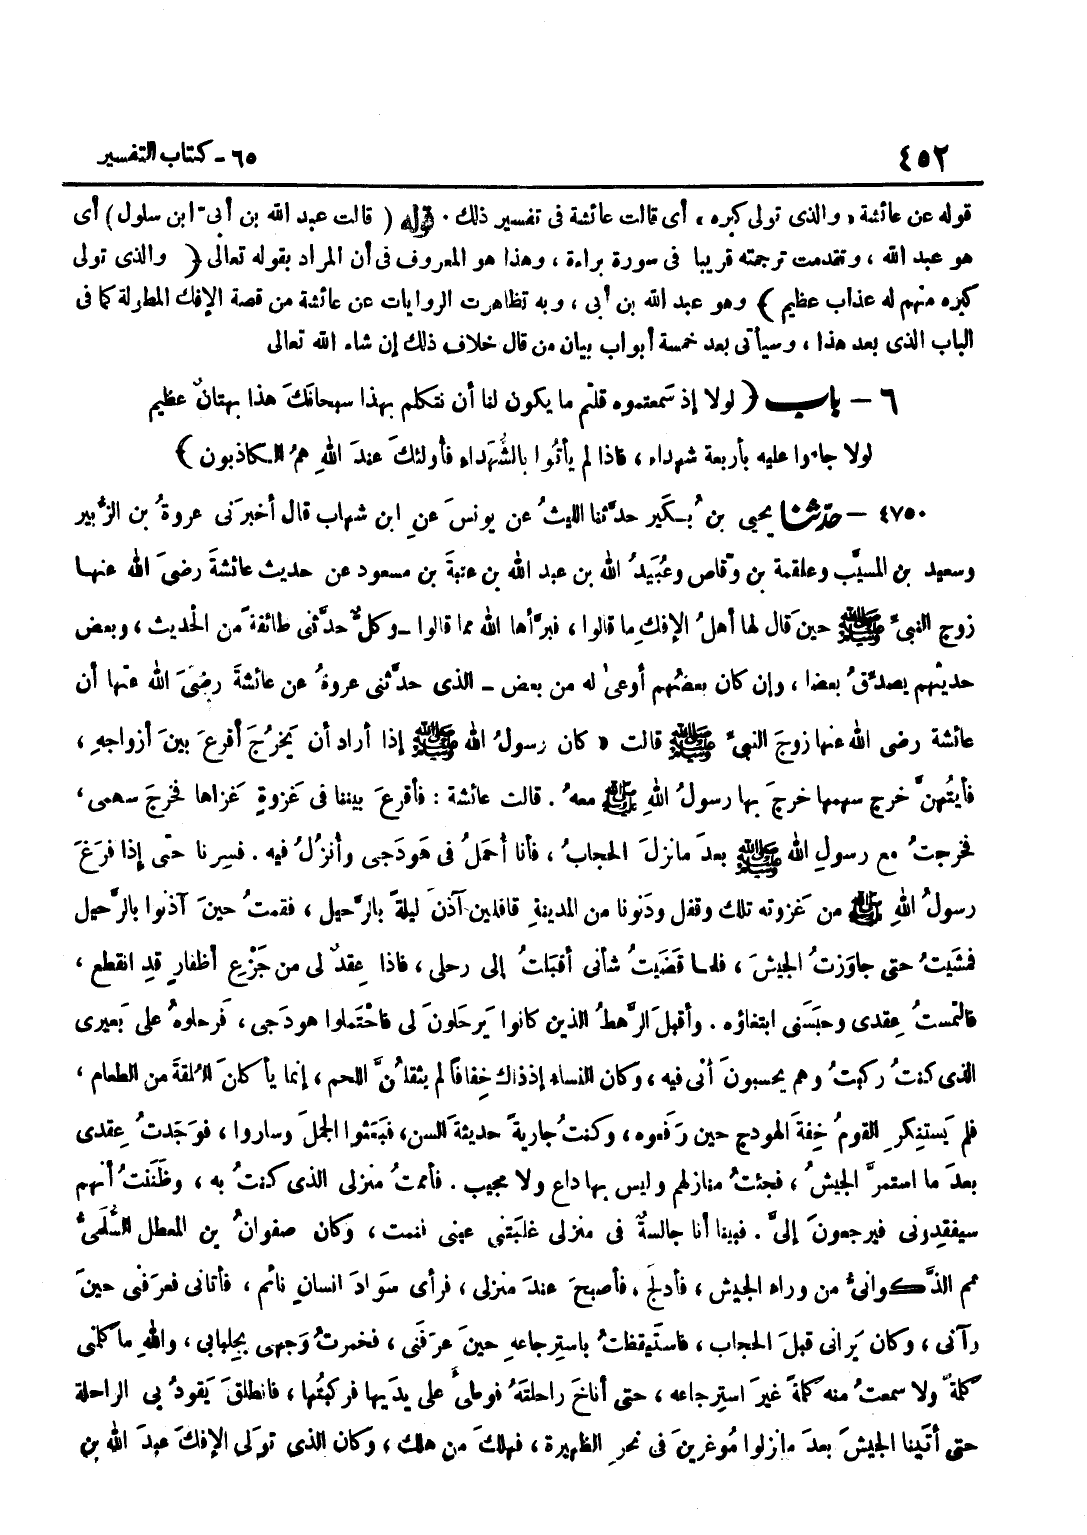 ٤٥٢
٦٥ - كتاب التفسير
قوله عن عائشة « والذى تولى كبره ، أى قالت عائشة فى تفسير ذلك . قوله ( قالت عبد الله بن أبى - ابن سلول ) أى
هو عبد الله ، وتقدمت ترجمته قريبا فى سورة براءة ، وهذا هو المعروف فى أن المراد بقوله تعالى ﴿ والذى تولى
كبره منهم له عذاب عظيم ﴾ وهو عبد الله بن أبى ، وبه تظاهرت الروايات عن عائشة من قصة الإفك المطولة كما فى
الباب الذى بعد هذا ، وسيأتى بعد خمسة أبواب بيان من قال خلاف ذلك إن شاء الله تعالى
٦ - باب ﴿ لولا إذ سَمعتموه قلتم ما يكون لنا أن نتكلم بهذا سبحانكَ هذا بهتانٌ عظيم
لولا جاءوا عليه بأربعة شهداء ، فاذا لم يأتُوا بالشُّهَداءِ فأولئكَ عندَ اللهِ همُ الكاذبون ﴾
٤٧٥٠ - حدّثنا يحيى بن بُكَير حدَّثنا الليثُ عن يونسَ عنِ ابن شهاب قال أخبرَنى عروةُ بن الزُّبير
وسعيد بن المسيَّب وعلقمة بن وقّاص وعُبَيدُ الله بن عبد الله بن عتبةَ بن مسعود عن حديث عائشةَ رضىَ الله عنها
زوج النبىِّ ﷺ حين قال لها أهلُ الإفكِ ما قالوا ، فبرَّأها الله مما قالوا - وكلٌّ حدَّثنى طائفةً من الحديث ، وبعض
حديثهم يصدِّقُ بعضا ، وإن كان بعضُهم أوعىٰ له من بعض - الذى حدَّثنى عروةُ عن عائشةَ رضىَ الله عنها أن
عائشة رضى الله عنها زوجَ النبىِّ ﷺ قالت « كان رسولُ الله ﷺ إذا أراد أن يَخرُجَ أقرعَ بينَ أزواجهِ ،
فأيتُهنَّ خرج سهمها خرجَ بها رسولُ اللهِ ﷺ معهُ . قالت عائشة : فأقرعَ بيننا فى غزوةٍ غزاها فخرجَ سهمى ،
فخرجتُ مع رسولِ الله ﷺ بعدَ ما نزلَ الحجابُ ، فأنا أحمَلُ فى هَودَجى وأنزَلُ فيه . فسِرنا حتى إذا فرَغَ
رسولُ اللهِ ﷺ من غزوته تلك وقفل ودَنونا من المدينةِ قافلين آذنَ ليلةً بالرَّحيل ، فقمتُ حينَ آذنوا بالرَّحيل
فمشَيتُ حتى جاوَزتُ الجيشَ ، فلما قضَيتُ شأنى أقبَلتُ إلى رحلى ، فاذا عِقدٌ لى من جَزْعِ أظفارٍ قدِ انقطع ،
فالتمستُ عِقدى وحبَسَنى ابتغاؤه . وأقبلَ الرَّهطُ الذين كانوا يَرحَلون لى فاحْتَملوا هودَجى ، فرحلوهُ على بَعيرى
الذى كنتُ ركبتُ وهم يحسبونَ أنى فيه ، وكان النساء إذذاك خِفافًا لم يثقلْنَّ اللحم ، إنما يأكلنَ العُلقةَ من الطعام ،
فلم يَستنكِرِ القومُ خِفةَ الهودج حين رَفَعوه ، وكنتُ جاريةً حديثةَ السن، فبَعَثوا الجملَ وساروا ، فوَجَدتُ عِقدى
بعدَ ما استمرَّ الجيشُ ، فجئتُ منازلهم وليس بها داعٍ ولا مجيب . فأممتُ منزلى الذى كنتُ به ، وظَنَنتُ أنهم
سيفقِدونى فيرجعونَ إلىَّ . فبينا أنا جالسةٌ فى منزلى غلبَتنى عينى فنمت ، وكان صفوانُ بن المعطل السُّلَمىُّ
ثم الذَّكوانىُّ من وراءِ الجيش ، فأدلجَ ، فأصبحَ عندَ منزلى ، فرأى سَوادَ انسانٍ نائم ، فأتانى فعرَفنى حينَ
رآنى ، وكان يَرانى قبلَ الحجاب ، فاستَيقظتُ باسترِجاعهِ حينَ عرَفَنى ، فخمرتُ وَجهى بجِلبابى ، واللهِ ما كلمنى
كلمةً ولا سمعتُ منه كلمةً غيرَ استرجاعه ، حتى أناخَ راحلتَهُ فوطئَ على يدَيها فركبتُها ، فانطلقَ يَقودُ بى الراحلة
حتى أتَينا الجيشَ بعدَ ما نزلوا مُوغِرينَ فى نحرِ الظهيرة ، فهلكَ من هلك ، وكان الذى تولى الإفكَ عبدَ الله بن